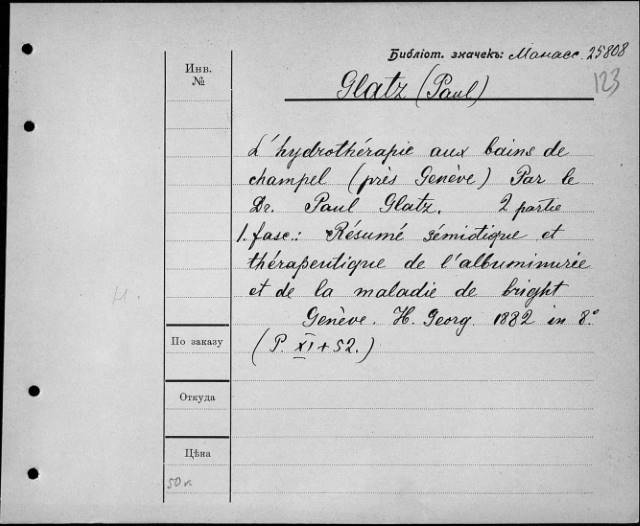 Библіот. значекъ: Манасс. 25808
123
Инв.
№
Glatz (Paul)
L'hydrothérapie aux bains de
champel (près Genève) Par le
Dr. Paul Glatz. 2 partie
1. fasc.: Résumé sémiotique et
thérapeutique de l'albuminurie
et de la maladie de bright
Genève. H. Georg. 1882 in 8.°
(P. XI + 52.)
По заказу
Откуда
Цѣна
50 к.